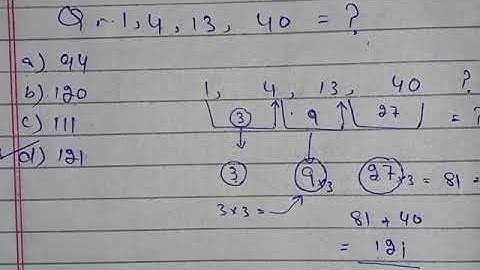 Q.. 1, 4, 13, 40 = ?
a) 94
b) 120
c) 111
d) 121
1, 4, 13, 40 ?
3 9 27 = ?
3 9 ×3 27 ×3 = 81 =
3×3 =
81 + 40
= 121